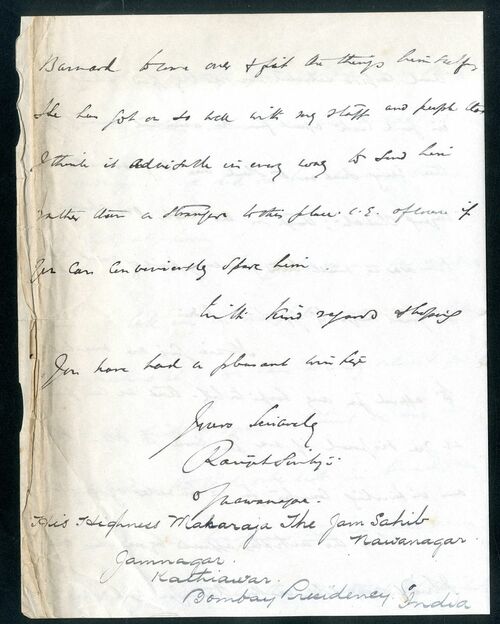 Barnard to come over & fit the things himself,
He has got on so well with my staff and people that
I think it advisable in every way to send him
rather than a stranger to this place. i.e. of course if
you can conveniently spare him.
With kind regards & hoping
you have had a pleasant winter
Yours Sincerely
Ranjitsinhji
of Nawanagar.
His Highness Maharaja The Jam Sahib
Nawanagar.
Jamnagar.
Kathiawar.
Bombay Presidency. India